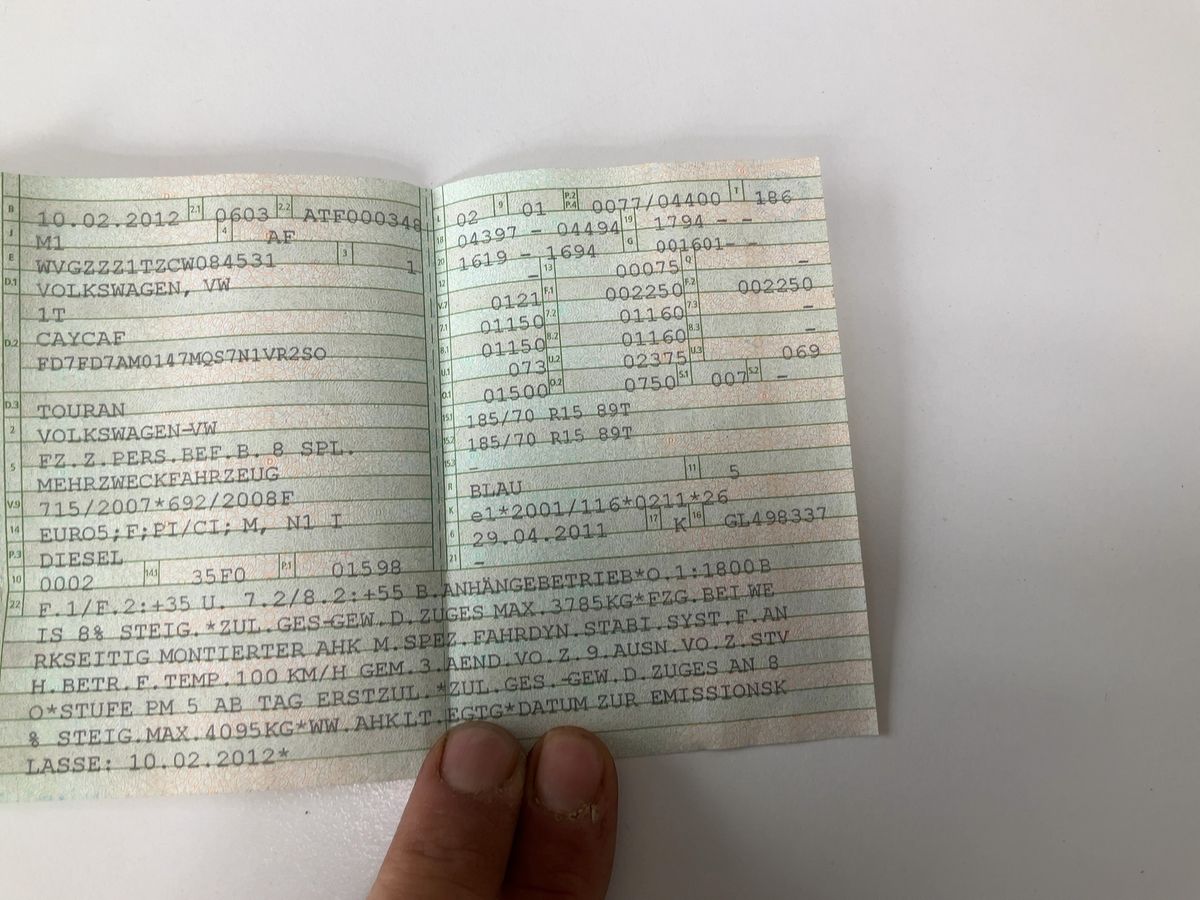 B 10.02.2012 2.1 0603 2.2 ATF000348
J M1 4 AF
E WVGZZZ1TZCW084531 3 1
D.1 VOLKSWAGEN, VW
1T
D.2 CAYCAF
FD7FD7AM0147MQS7N1VR2SO
D.3 TOURAN
2 VOLKSWAGEN-VW
5 FZ.Z.PERS.BEF.B. 8 SPL.
MEHRZWECKFAHRZEUG
V.9 715/2007*692/2008F
14 EURO5;F;PI/CI; M, N1 I
P.3 DIESEL
10 0002 14.1 35F0 P.1 01598
L 02 9 01 P.2 P.4 0077/04400 T 186
18 04397 - 04494 19 1794 - -
20 1619 - 1694 G 001601- -
12 - 13 00075 Q -
V.7 0121 F.1 002250 F.2 002250
7.1 01150 7.2 01160 7.3 -
8.1 01150 8.2 01160 8.3 -
U.1 073 U.2 02375 U.3 069
O.1 01500 O.2 0750 S.1 007 S.2 -
15.1 185/70 R15 89T
15.2 185/70 R15 89T
15.3 -
R BLAU 11 5
K e1*2001/116*0211*26
6 29.04.2011 17 K 16 GL498337
21 -
22 F.1/F.2:+35 U. 7.2/8.2:+55 B.ANHÄNGEBETRIEB*O.1:1800 B
IS 8% STEIG.*ZUL.GES-GEW.D.ZUGES MAX.3785KG*FZG.BEI WE
RKSEITIG MONTIERTER AHK M.SPEZ.FAHRDYN.STABI.SYST.F.AN
H.BETR.F.TEMP.100 KM/H GEM.3.AEND.VO.Z.9.AUSN.VO.Z.STV
O*STUFE PM 5 AB TAG ERSTZUL.*ZUL.GES.-GEW.D.ZUGES AN 8
% STEIG.MAX.4095KG*WW.AHKLT.EGTG*DATUM ZUR EMISSIONSK
LASSE: 10.02.2012*